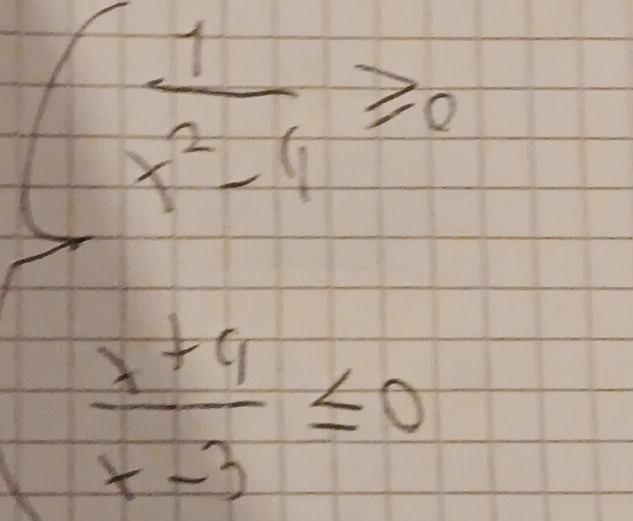 1
x² - 4
≥0
x + 4
x - 3
≤0